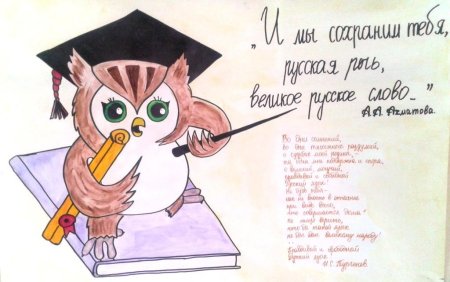 „И мы сохраним тебя,
русская речь,
великое русское слово..."
А.А. Ахматова.
Во дни сомнений,
во дни тягостных раздумий,
о судьбе моей родины,
ты один мне поддержка и опора,
о великий, могучий,
правдивый и свободный
русский язык!
Не будь тебя -
как не впасть в отчаяние
при виде всего,
что совершается дома?
Но нельзя верить,
чтобы такой язык
не был дан великому народу!
правдивый и свободный
русский язык
И.С. Тургенев